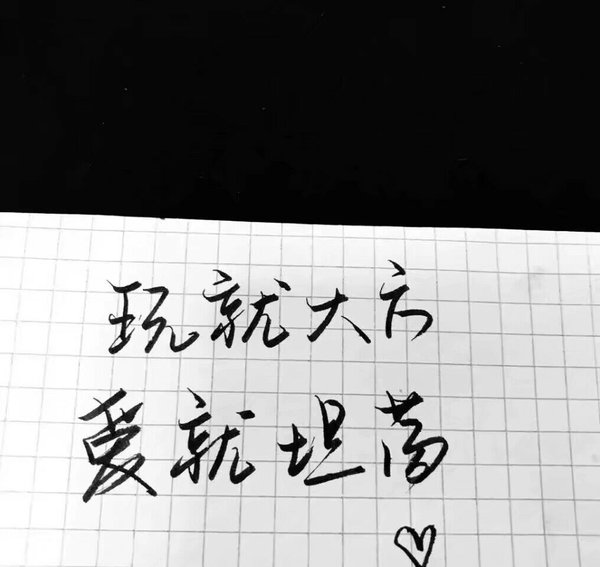 玩就大方
爱就坦荡